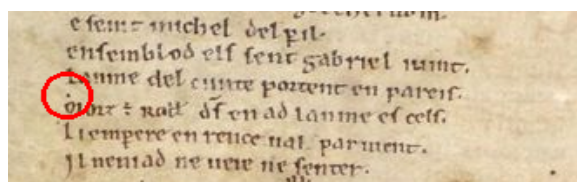 e seint michel del pil.
ensemblod els sent gabriel uint.
Lanme del cunte portent en pareis.
Morz ÷ roll̃ d̃s en ad lanme es cels.
Li empere en
Il nen i ad ne ueie ne senter.